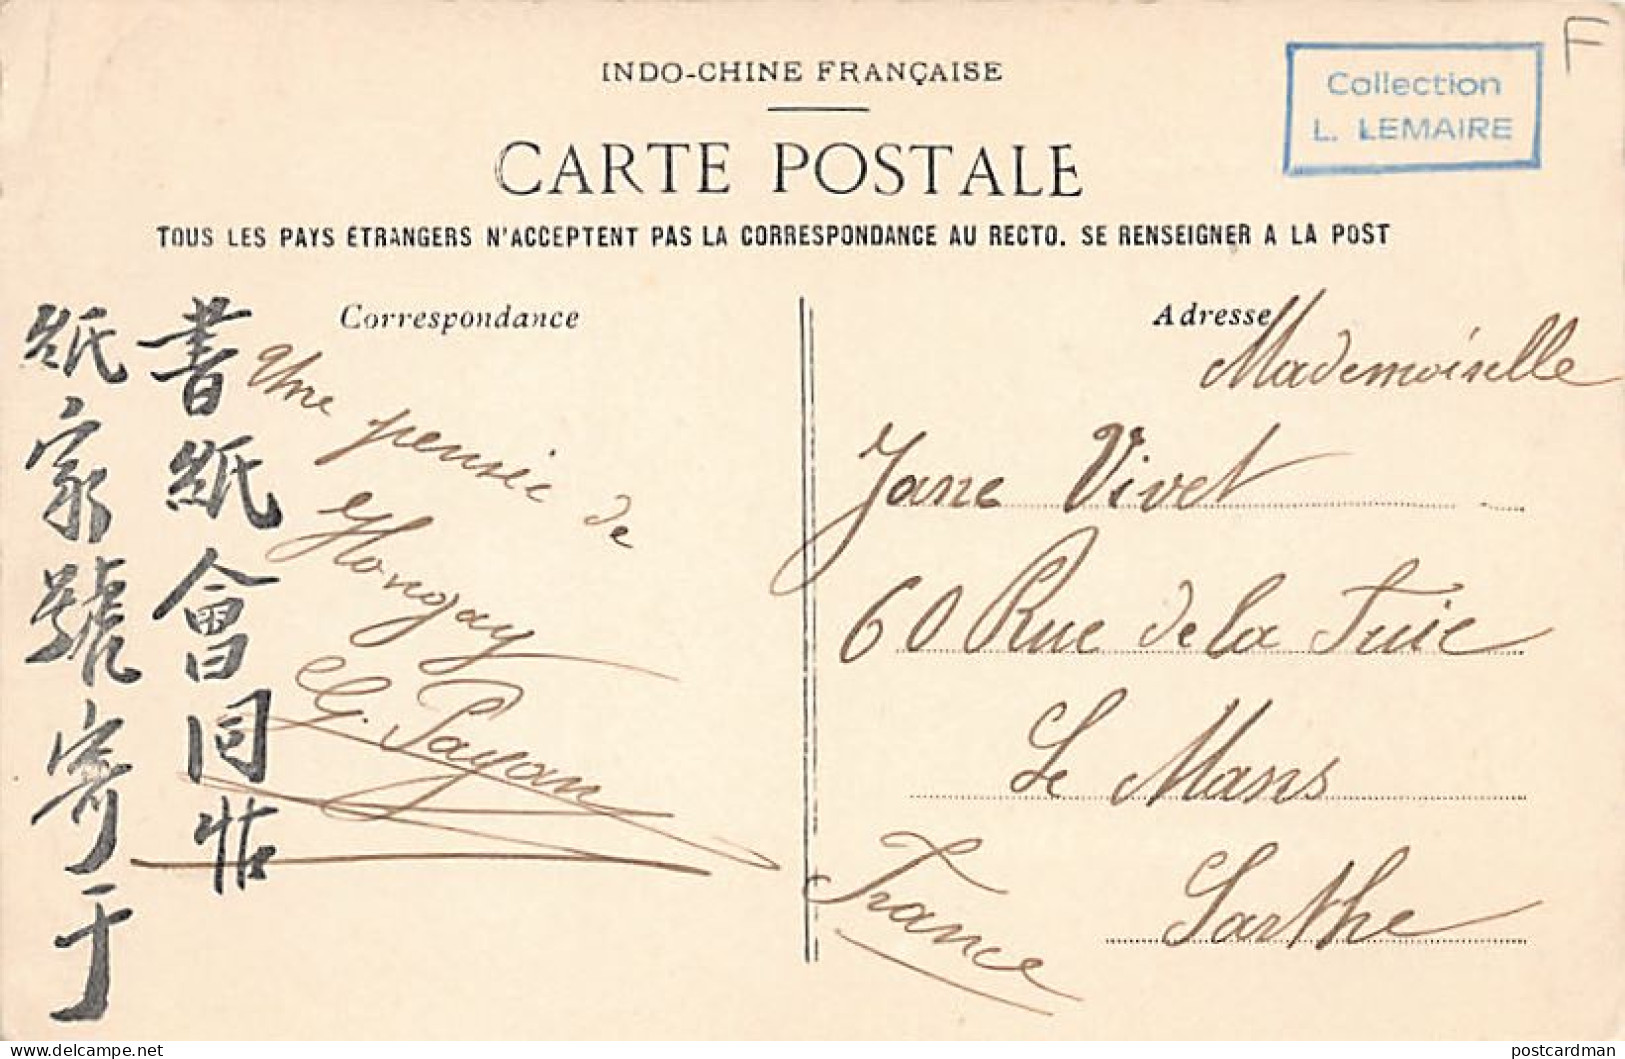 F
Collection
L. LEMAIRE
INDO-CHINE FRANÇAISE
CARTE POSTALE
TOUS LES PAYS ÉTRANGERS N'ACCEPTENT PAS LA CORRESPONDANCE AU RECTO. SE RENSEIGNER A LA POST
Correspondance
書紙會同帖
紙家號寄于
Une pensée de
Hongay
G. Payan
Adresse
Mademoiselle
Jane Vivet
60 Rue de la Fuie
Le Mans
Sarthe
France
delcampe.net
postcardman